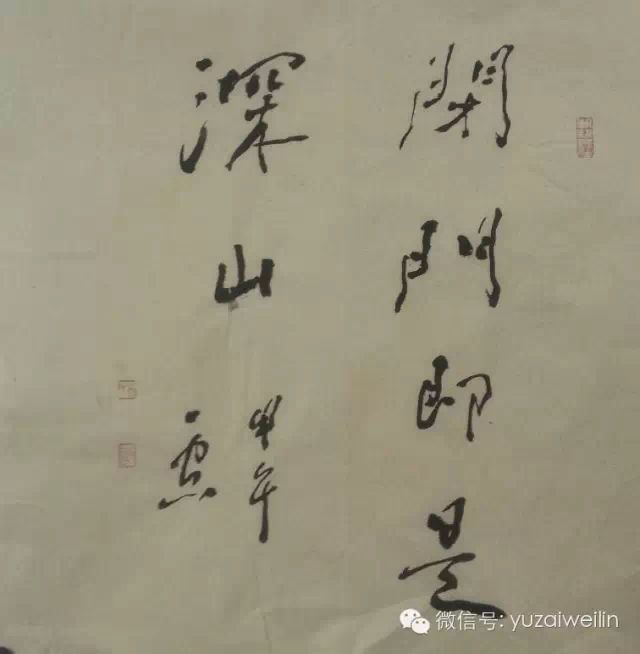 閉門即是
深山
甲午
微信号: yuzaiweilin